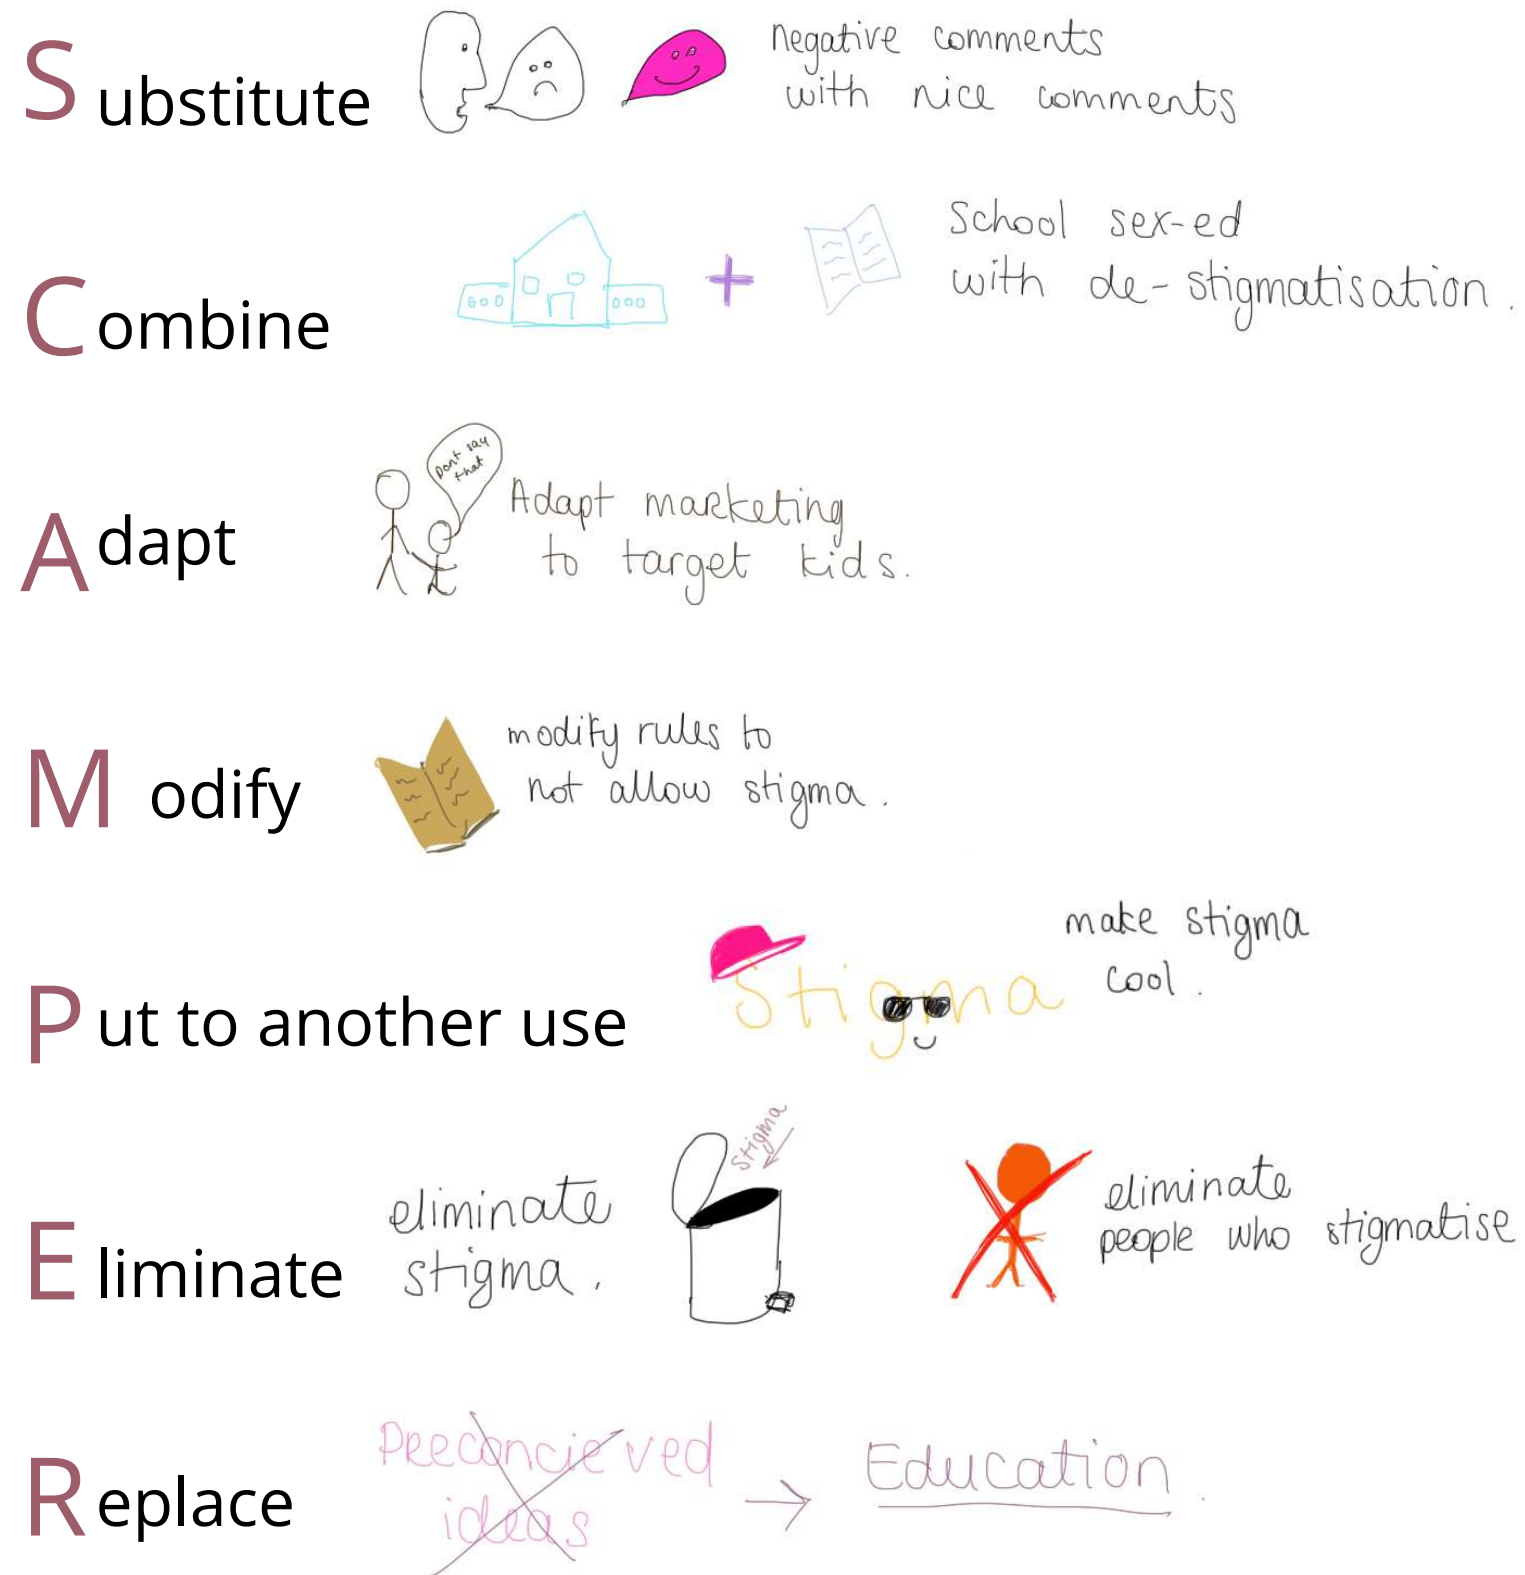 Substitute
negative comments
with nice comments
Combine
+
School sex-ed
with de-stigmatisation.
Adapt
Dont say
that
Adapt marketing
to target kids.
Modify
modify rules to
not allow stigma.
Put to another use
Stigma
make stigma
cool.
Eliminate
eliminate
stigma.
Stigma
eliminate
people who stigmatise
Replace
Preconcieved
ideas
→
Education.